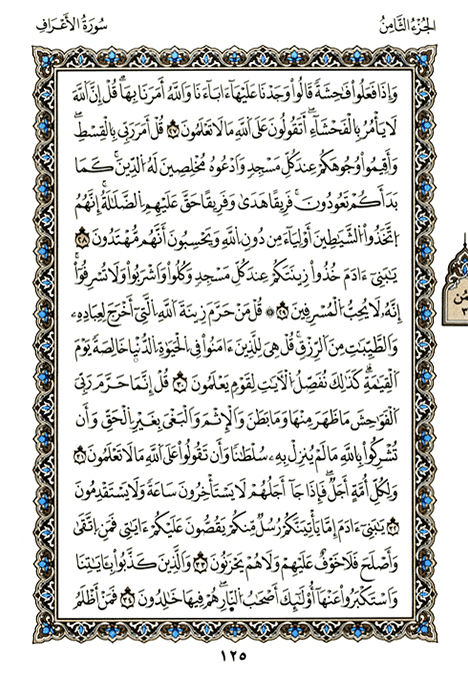 الجُزْءُ الثَّامِنُ
سُورَةُ الأَعْرَافِ
وَإِذَا فَعَلُواْ فَٰحِشَةً قَالُواْ وَجَدْنَا عَلَيْهَآ ءَابَآءَنَا وَٱللَّهُ أَمَرَنَا بِهَاۗ قُلْ إِنَّ ٱللَّهَ
لَا يَأْمُرُ بِٱلْفَحْشَآءِۖ أَتَقُولُونَ عَلَى ٱللَّهِ مَا لَا تَعْلَمُونَ ٢٧ قُلْ أَمَرَ رَبِّي بِٱلْقِسْطِۖ
وَأَقِيمُواْ وُجُوهَكُمْ عِندَ كُلِّ مَسْجِدٍ وَٱدْعُوهُ مُخْلِصِينَ لَهُ ٱلدِّينَۚ كَمَا
بَدَأَكُمْ تَعُودُونَۚ فَرِيقًا هَدَىٰ وَفَرِيقًا حَقَّ عَلَيْهِمِ ٱلضَّلَٰلَةُۚ إِنَّهُمُ
ٱتَّخَذُواْ ٱلشَّيَٰطِينَ أَوْلِيَآءَ مِن دُونِ ٱللَّهِ وَيَحْسِبُونَ أَنَّهُم مُّهْتَدُونَ ٢٨
يَٰبَنِيٓ ءَادَمَ خُذُواْ زِينَتَكُمْ عِندَ كُلِّ مَسْجِدٍ وَكُلُواْ وَٱشْرَبُواْ وَلَا تُسْرِفُوٓاْۚ
إِنَّهُۥ لَا يُحِبُّ ٱلْمُسْرِفِينَ ٢٩ ۞ قُلْ مَنْ حَرَّمَ زِينَةَ ٱللَّهِ ٱلَّتِيٓ أَخْرَجَ لِعِبَادِهِۦ
وَٱلطَّيِّبَٰتِ مِنَ ٱلرِّزْقِۚ قُلْ هِيَ لِلَّذِينَ ءَامَنُواْ فِي ٱلْحَيَوٰةِ ٱلدُّنْيَا خَالِصَةً يَوْمَ
ٱلْقِيَٰمَةِۗ كَذَٰلِكَ نُفَصِّلُ ٱلْأٓيَٰتِ لِقَوْمٍ يَعْلَمُونَ ٣٠ قُلْ إِنَّمَا حَرَّمَ رَبِّيَ
ٱلْفَوَٰحِشَ مَا ظَهَرَ مِنْهَا وَمَا بَطَنَ وَٱلْإِثْمَ وَٱلْبَغْيَ بِغَيْرِ ٱلْحَقِّ وَأَن
تُشْرِكُواْ بِٱللَّهِ مَا لَمْ يُنزِلْ بِهِۦ سُلْطَٰنًا وَأَن تَقُولُواْ عَلَى ٱللَّهِ مَا لَا تَعْلَمُونَ ٣١
وَلِكُلِّ أُمَّةٍ أَجَلٌۖ فَإِذَا جَآ أَجَلُهُمْ لَا يَسْتَأْخِرُونَ سَاعَةً وَلَا يَسْتَقْدِمُونَ
٣٢ يَٰبَنِيٓ ءَادَمَ إِمَّا يَأْتِيَنَّكُمْ رُسُلٌ مِّنكُمْ يَقُصُّونَ عَلَيْكُمْ ءَايَٰتِي فَمَنِ ٱتَّقَىٰ
وَأَصْلَحَ فَلَا خَوْفٌ عَلَيْهِمْ وَلَا هُمْ يَحْزَنُونَ ٣٣ وَٱلَّذِينَ كَذَّبُواْ بِـَٔايَٰتِنَا
وَٱسْتَكْبَرُواْ عَنْهَآ أُوْلَٰٓئِكَ أَصْحَٰبُ ٱلنَّارِۖ هُمْ فِيهَا خَٰلِدُونَ ٣٤ فَمَنْ أَظْلَمُ
١٢٥